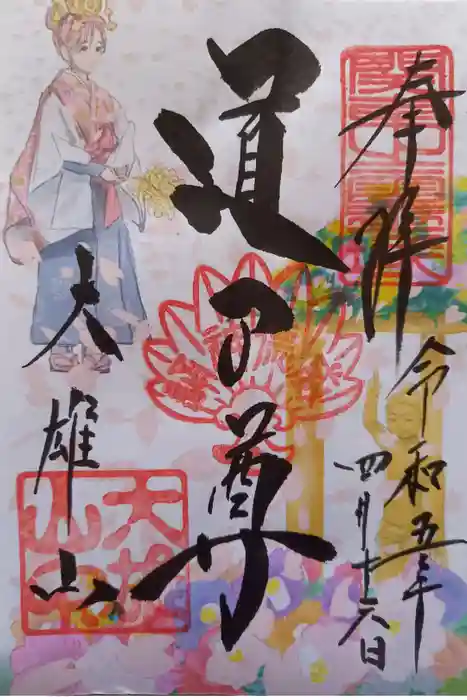 奉拝
令和五年
四月十六日
道了尊
大雄山